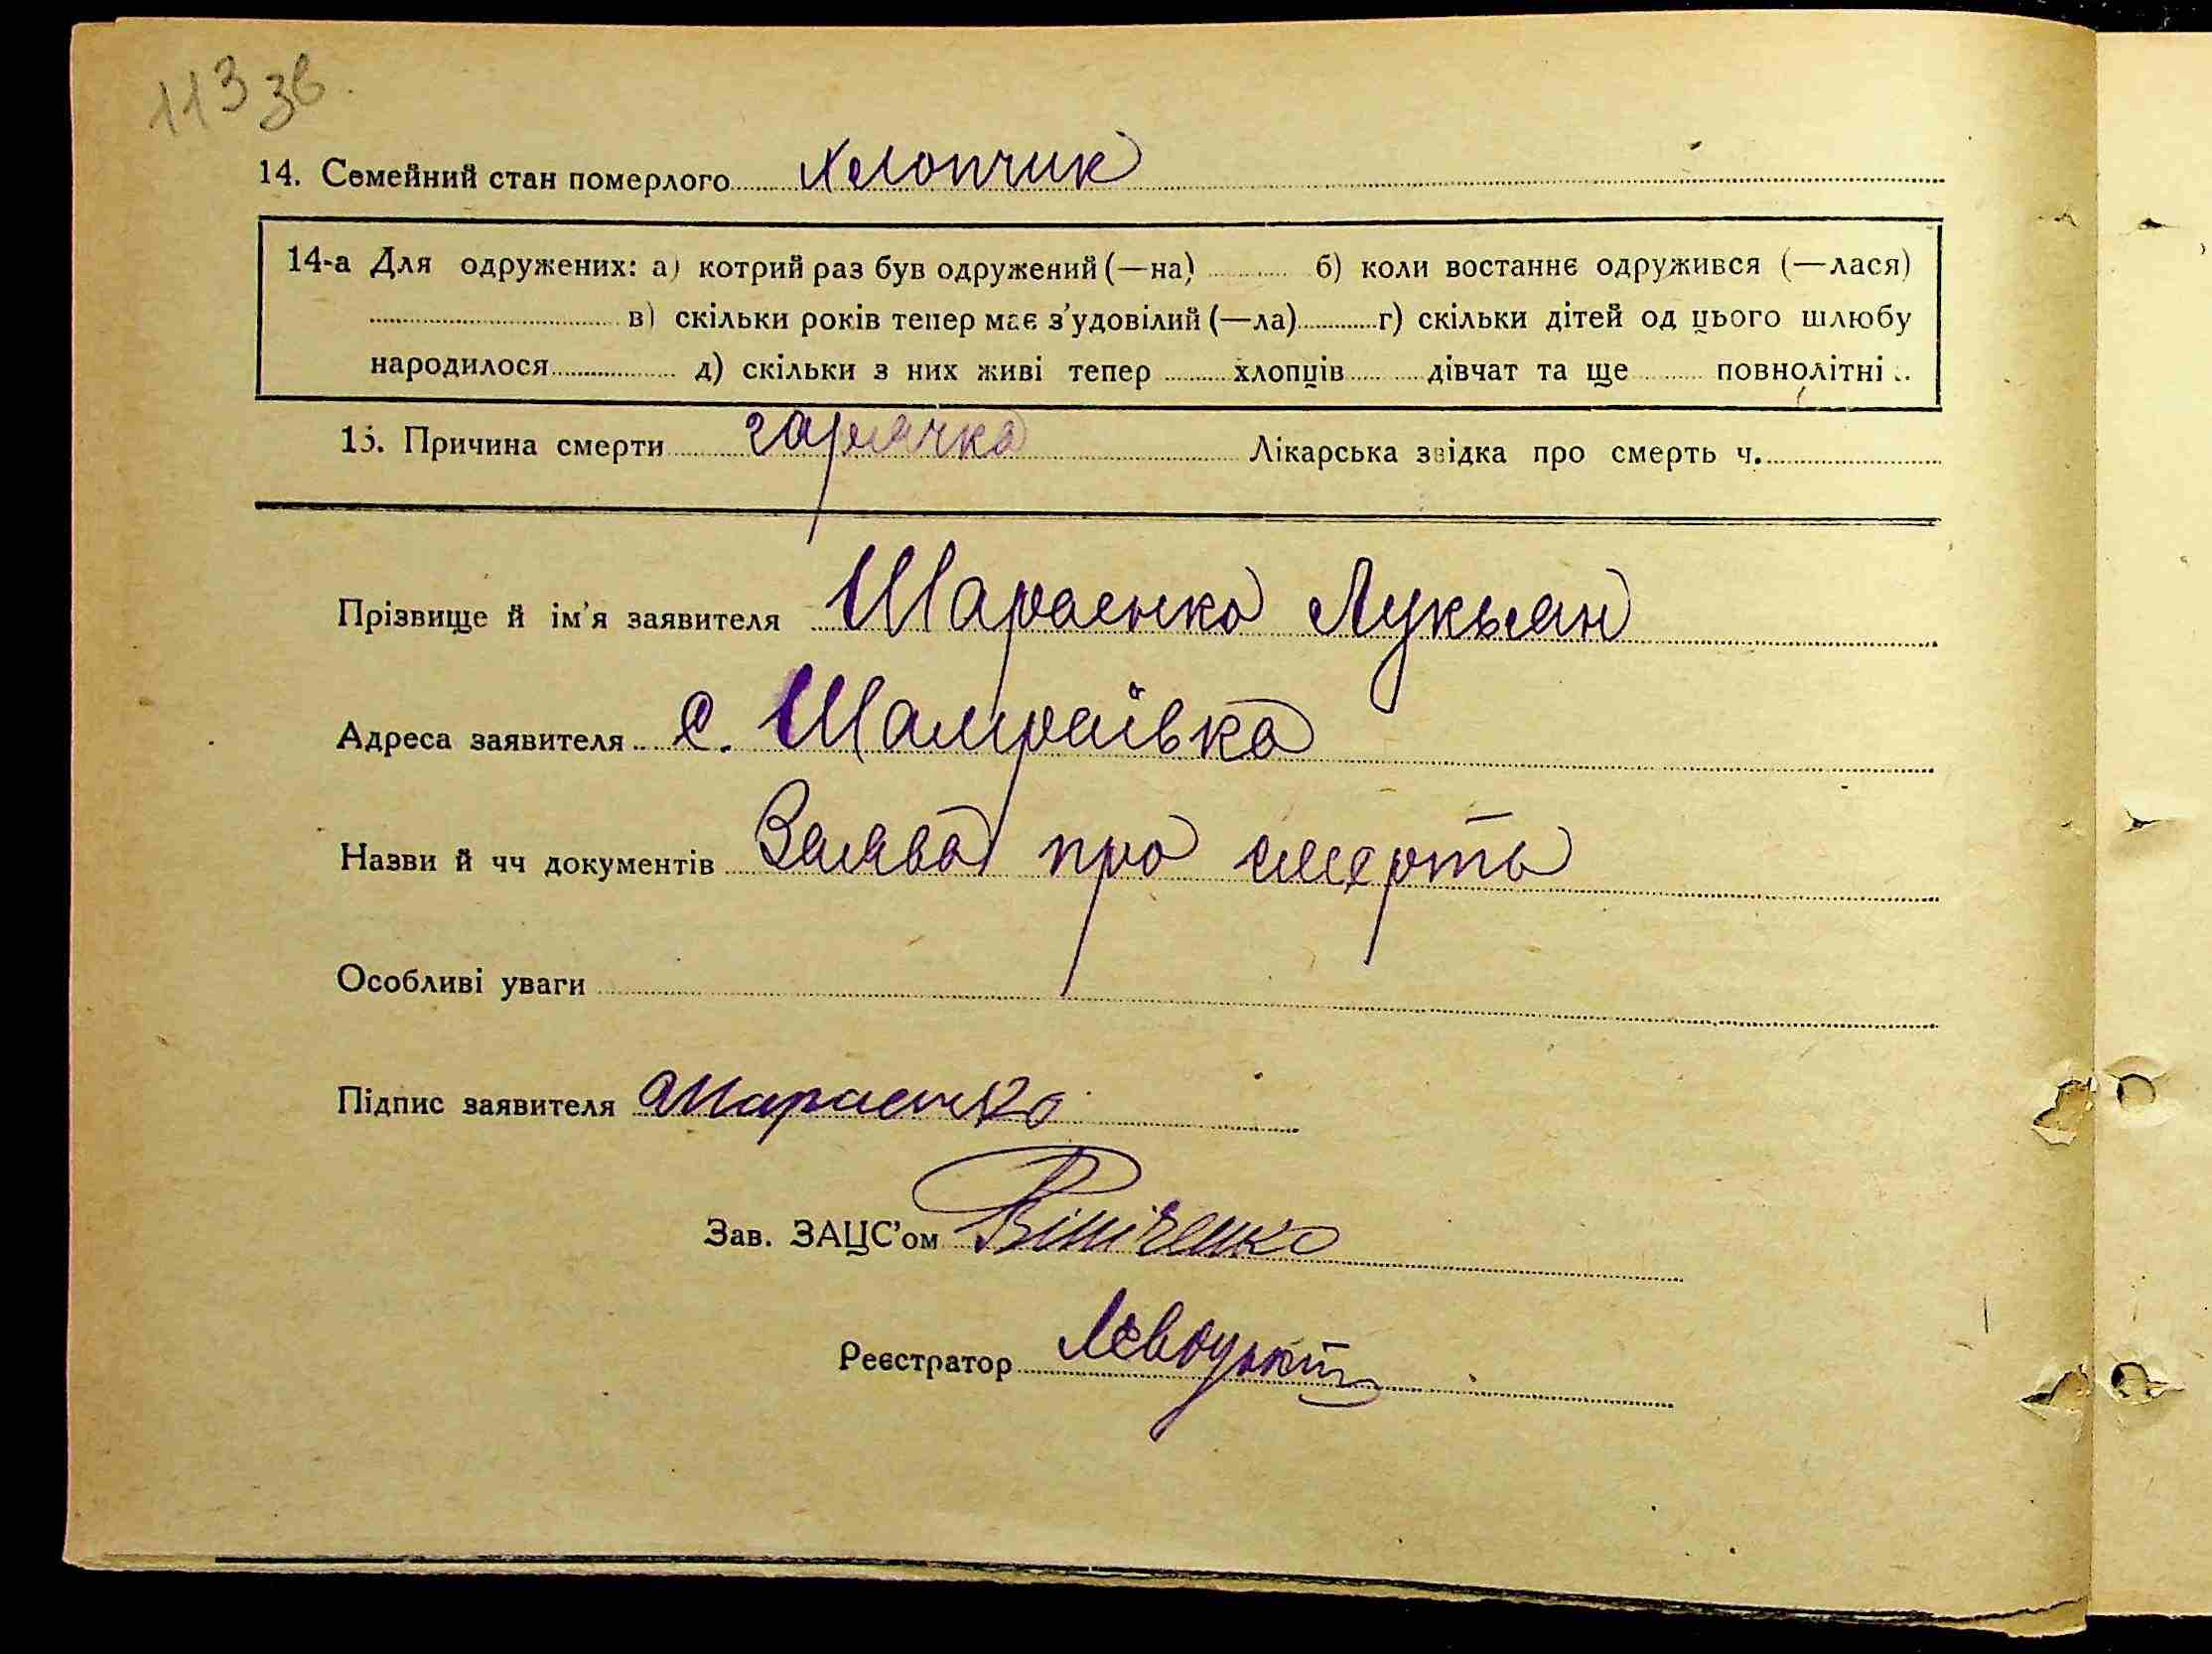 113 зв.
14. Семейний стан померлого Хлопчик
14-а Для одружених: а) котрий раз був одружений (—на) б) коли востаннє одружився (—лася)
в) скільки років тепер має з'удовілий (—ла) г) скільки дітей од цього шлюбу
народилося д) скільки з них живі тепер хлопців дівчат та ще повнолітні
15. Причина смерти гарячка Лікарська звідка про смерть ч.
Прізвище й ім'я заявителя Шараенко Лукьян
Адреса заявителя с. Шамраївка
Назви й чч документів Заява про смерть
Особливі уваги
Підпис заявителя Шараенко
Зав. ЗАЦС'ом
Реєстратор